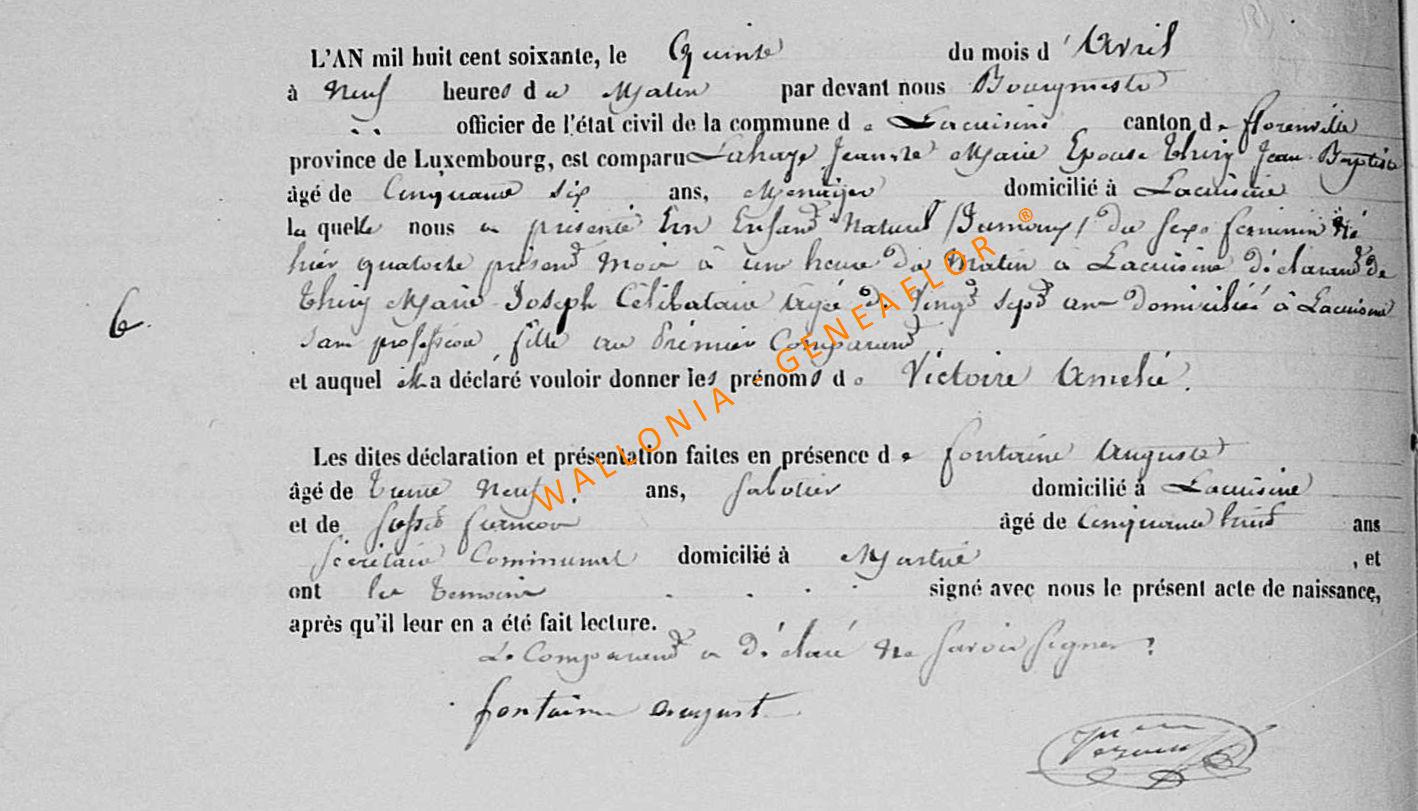 L'AN mil huit cent soixante, le Quinze du mois d'Avril
à Neuf heures du Matin par devant nous Bourgmestre
officier de l'état civil de la commune de Lacuisine canton de florenville
province de Luxembourg, est comparu Lahaye Jeanne Marie Epouse Thiry Jean Baptiste
âgé de Cinquante six ans, Menager domicilié à Lacuisine
la quelle nous a présenté Un Enfant Naturel du sexe feminin Né
hier quatorze présent Mois à une heure du Matin à Lacuisine déclarant de
Thiry Marie Joseph Célibataire Agée de Vingt Sept ans Domiciliée à Lacuisine
Sans profession fille au Premier Comparant
6.
et auquel a déclaré vouloir donner les prénoms de Victoire Amelie.
Les dites déclaration et présentation faites en présence de fontaine Auguste
âgé de Trente Neuf ans, Sabotier domicilié à Lacuisine
et de âgé de Cinquante huit ans
Secrétaire Communal domicilié à Martué, et
ont les Temoins signé avec nous le présent acte de naissance,
après qu'il leur en a été fait lecture.
Le Comparant a Déclaré Ne Savoir Signer
fontaine August
WALLONIA - GENEAFLOR ®